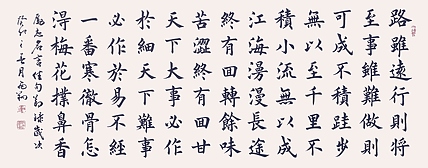 路雖遠行則將
至事雖難做則
可成不積跬步
無以至千里不
積小流無以成
江海漫漫長途
終有回轉餘味
苦澀終有回甘
天下大事必作
於細天下難事
必作於易不經
一番寒徹骨怎
得梅花撲鼻香
勵志名言佳句 歲次
癸卯之 月